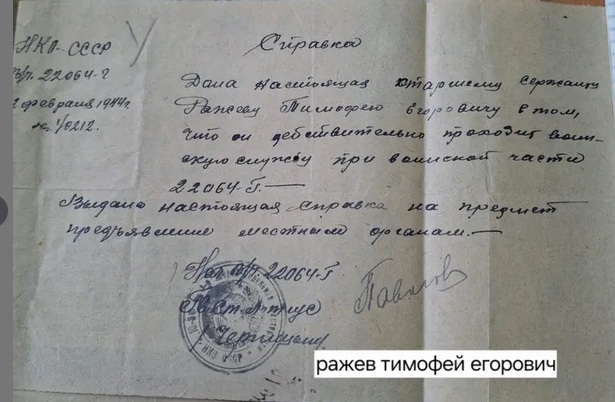 НКО-СССР
В/ч. 22064-Г
2 февраля 1944г.
№ 1/0212.
Справка
Дана настоящая старшему сержанту
Ражеву Тимофею Егоровичу в том,
что он действительно проходит воин-
скую службу при воинской части
22064-Г.
Выдана настоящая справка на предмет
предъявление местным органам.
Нач в/ч. 22064-Г
Павлов
ражев тимофей егорович